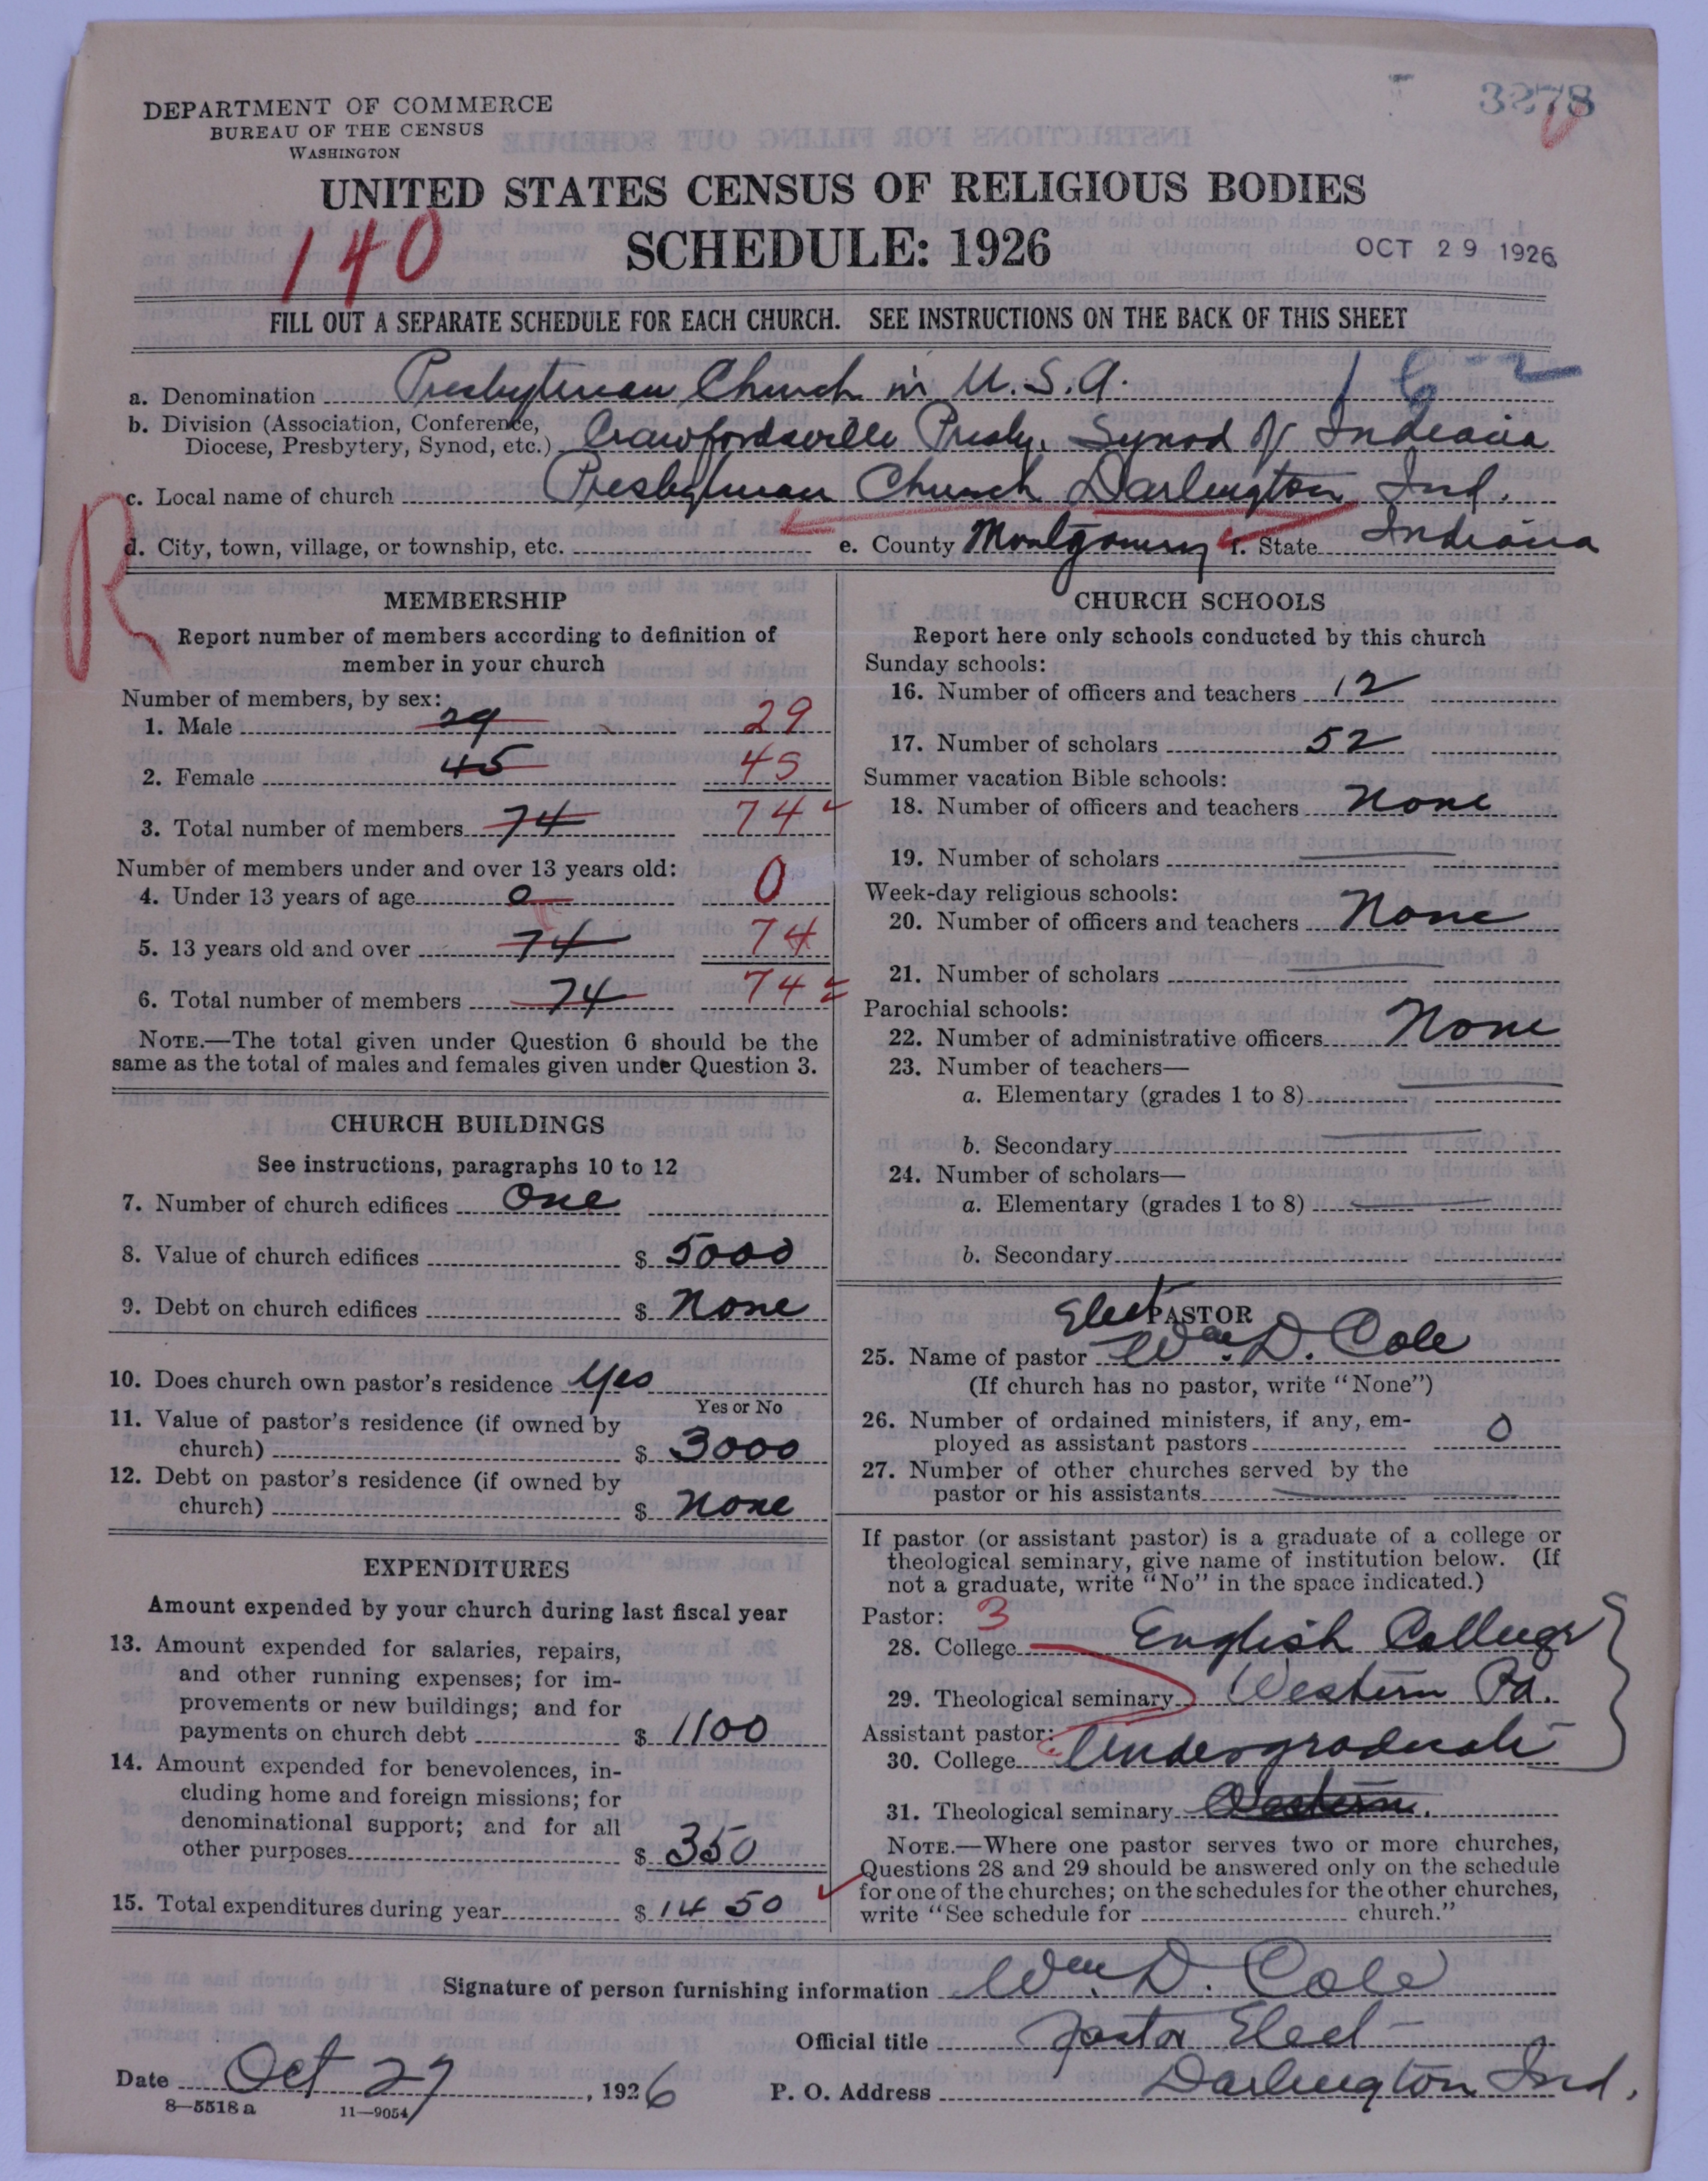 3278
DEPARTMENT OF COMMERCE
BUREAU OF THE CENSUS
WASHINGTON
UNITED STATES CENSUS OF RELIGIOUS BODIES
140
SCHEDULE: 1926
OCT 29 1926
FILL OUT A SEPARATE SCHEDULE FOR EACH CHURCH. SEE INSTRUCTIONS ON THE BACK OF THIS SHEET
a. Denomination Presbyterian Church in U.S.A. 16-2
b. Division (Association, Conference,
Diocese, Presbytery, Synod, etc.) Crawfordsville Presby. Synod of Indiana
c. Local name of church Presbyterian Church Darlington Ind.
R
d. City, town, village, or township, etc. e. County Montgomery f. State Indiana
MEMBERSHIP
Report number of members according to definition of
member in your church
Number of members, by sex:
1. Male 29 29
2. Female 45 45
3. Total number of members 74 74
Number of members under and over 13 years old:
4. Under 13 years of age 0 0
5. 13 years old and over 74 74
6. Total number of members 74 74
NOTE.—The total given under Question 6 should be the
same as the total of males and females given under Question 3.
CHURCH BUILDINGS
See instructions, paragraphs 10 to 12
7. Number of church edifices One
8. Value of church edifices $ 5000
9. Debt on church edifices $ None
10. Does church own pastor's residence Yes
Yes or No
11. Value of pastor's residence (if owned by
church) $ 3000
12. Debt on pastor's residence (if owned by
church) $ None
EXPENDITURES
Amount expended by your church during last fiscal year
13. Amount expended for salaries, repairs,
and other running expenses; for im-
provements or new buildings; and for
payments on church debt $ 1100
14. Amount expended for benevolences, in-
cluding home and foreign missions; for
denominational support; and for all
other purposes $ 350
15. Total expenditures during year $ 1450
CHURCH SCHOOLS
Report here only schools conducted by this church
Sunday schools:
16. Number of officers and teachers 12
17. Number of scholars 52
Summer vacation Bible schools:
18. Number of officers and teachers None
19. Number of scholars
Week-day religious schools:
20. Number of officers and teachers None
21. Number of scholars
Parochial schools:
22. Number of administrative officers None
23. Number of teachers—
a. Elementary (grades 1 to 8)
b. Secondary
24. Number of scholars—
a. Elementary (grades 1 to 8)
b. Secondary
Elect PASTOR
25. Name of pastor Wm. D. Cole
(If church has no pastor, write "None")
26. Number of ordained ministers, if any, em-
ployed as assistant pastors 0
27. Number of other churches served by the
pastor or his assistants
If pastor (or assistant pastor) is a graduate of a college or
theological seminary, give name of institution below. (If
not a graduate, write "No" in the space indicated.)
Pastor: 3
28. College English College
29. Theological seminary Western Pa.
Assistant pastor:
30. College Undergraduate
31. Theological seminary Western.
NOTE.—Where one pastor serves two or more churches,
Questions 28 and 29 should be answered only on the schedule
for one of the churches; on the schedules for the other churches,
write "See schedule for church."
Signature of person furnishing information Wm. D. Cole
Official title Pastor Elect
Date Oct 27, 1926 P. O. Address Darlington Ind.
8—5518 a 11—9054